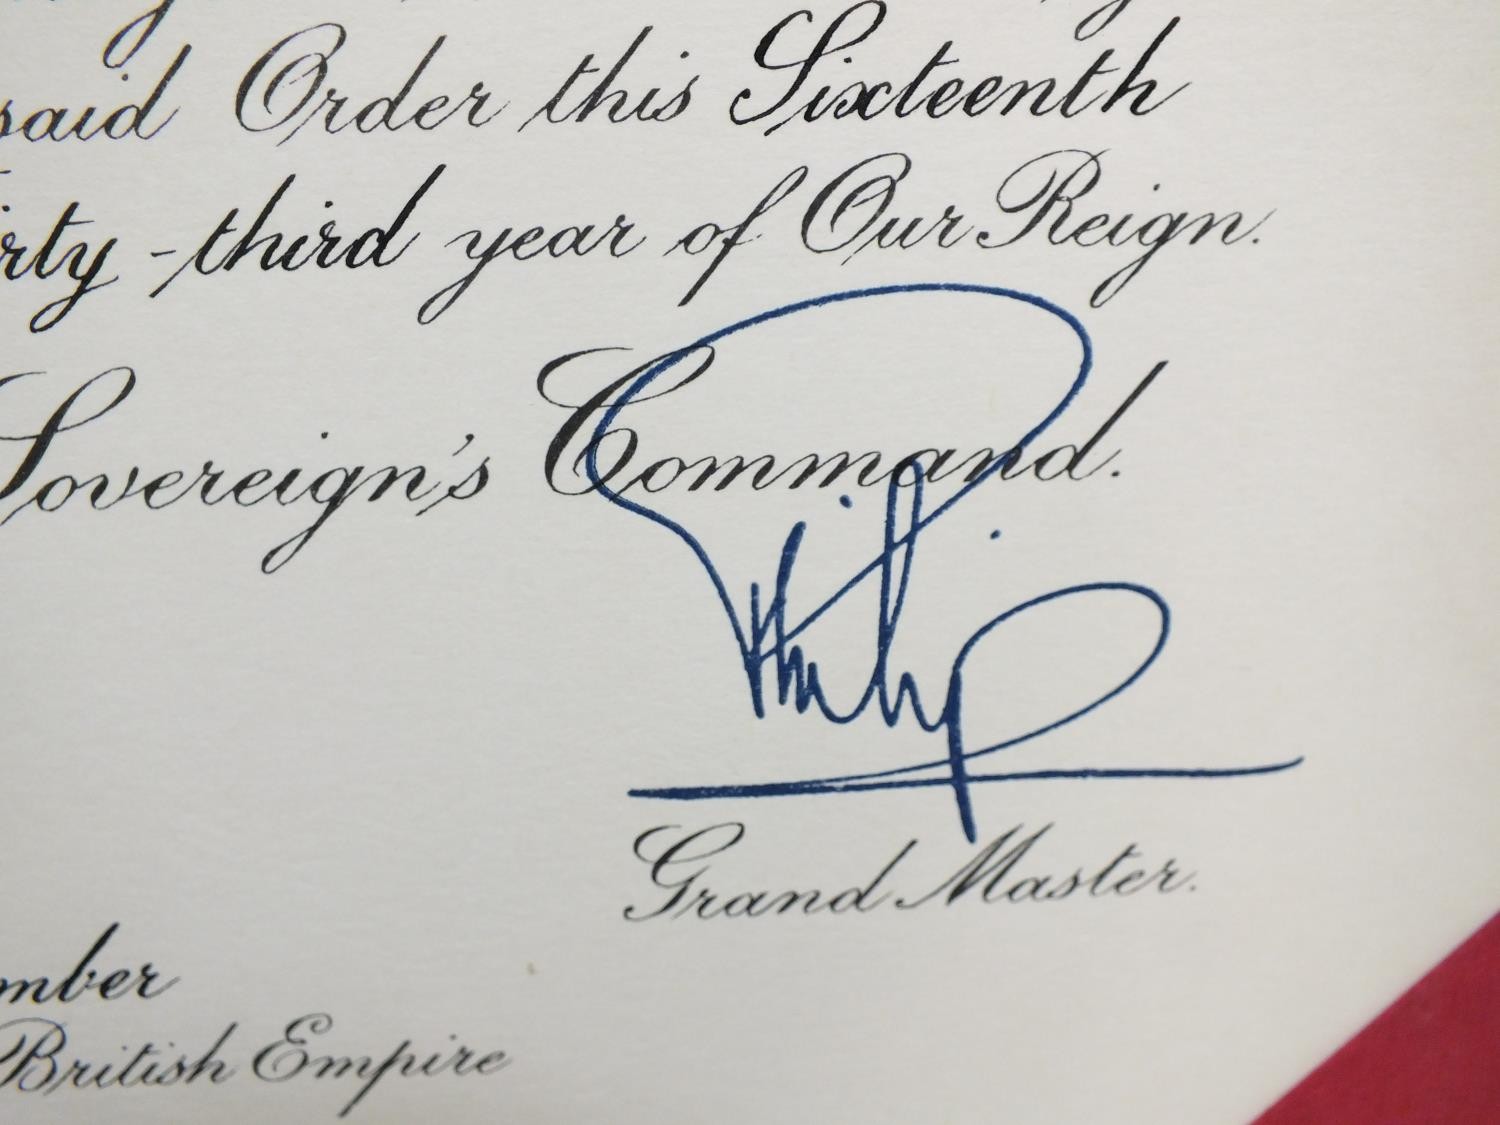 said Order this Sixteenth
irty-third year of Our Reign.
Sovereign's Command.
Philip
Grand Master.
mber
British Empire